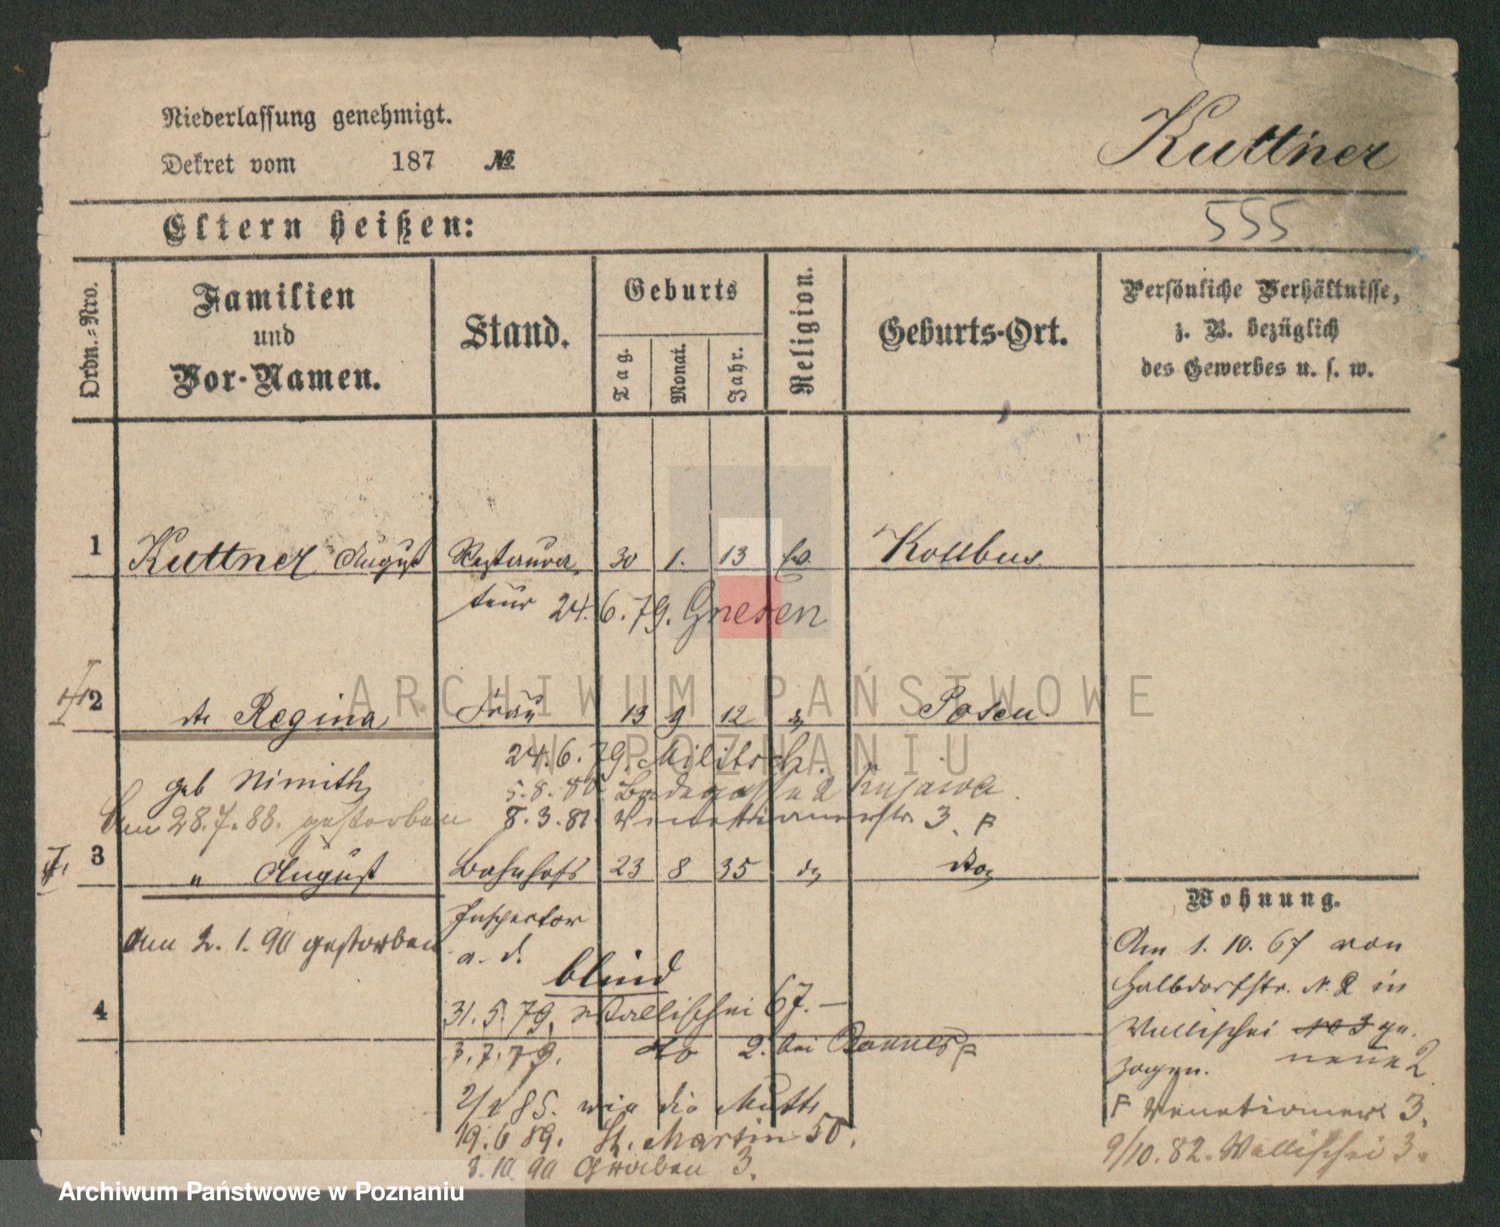 Niederlassung genehmigt.
Dekret vom 187 №
Kuttner
Eltern heißen:
555
Ordn.-Nro.
Familien
und
Vor-Namen.
Stand.
Geburts
Tag.
Monat.
Jahr.
Religion.
Geburts-Ort.
Persönliche Verhältnisse,
z. B. bezüglich
des Gewerbes u. s. w.
1 Kuttner August Restaura- 30 1. 13 Ev. Kottbus.
teur 24.6.79. Gnesen
2 Regina Frau 13 9 12 Posen
24.6.79. Militsch.
geb Nimith
5.8.80. Badegasse 2
Am 28.7.88. gestorben
8.3.81. Venetianerstr. 3.
3 " August Bahnhofs 23 8 35 do
Inspector
a. d.
am 2. 1. 90 gestorben
blind
4
31.5.79. Wallischei 67.
3.7.79. do 2. bei
85. wie die Mutter
19.6 89. St. Martin 50.
8.10 90 Graben 3.
Wohnung.
Am 1. 10. 67 von
Halbdorfstr. N. 2 in
Wallischei 103 ge-
zogen. neue 2.
Venetianer 3.
9/10.82. Wallischei 3.
ARCHIWUM PAŃSTWOWE
W POZNANIU
Archiwum Państwowe w Poznaniu